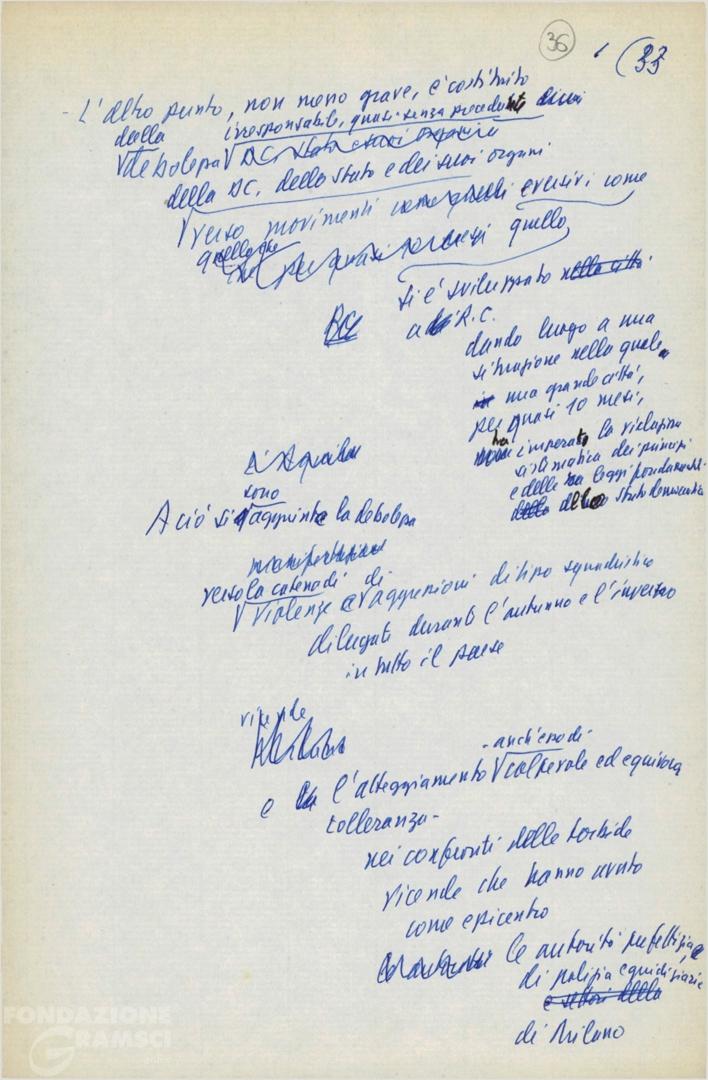 36
(33
- L'altro punto, non meno grave, è costituito
dalla irresponsabile, quasi senza precedenti
debolezza DC, Stato e suoi organi
della DC, dello Stato e dei suoi organi
verso movimenti eversivi come
quello che per quasi 10 mesi quello
si è sviluppato nella città
a R.C.
dando luogo a una
situazione nella quale
in una grande città,
per quasi 10 mesi,
ha imperato la violazione
sistematica dei principi
e delle leggi fondamentali
dello Stato democratico
L'Aquila
sono
A ciò si aggiunte la debolezza
manifestazioni
verso la catena di di
violenze e aggressioni di tipo squadristico
dilagati durante l'autunno e l'inverno
in tutto il paese
vicende
- anch'esso di -
e l'atteggiamento colpevole ed equivoca
tolleranza -
nei confronti delle torbide
vicende che hanno avuto
come epicentro
le autorità prefettizie,
di polizia e giudiziarie
e settori della
di Milano
FONDAZIONE
GRAMSCI